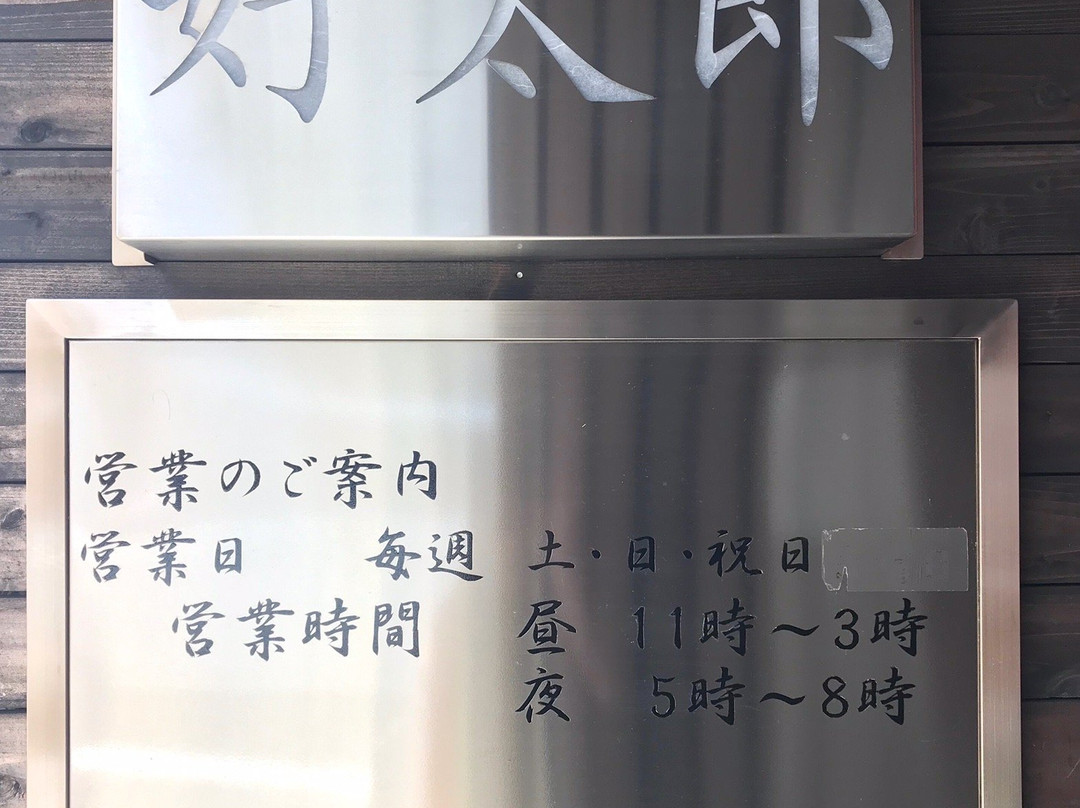 好太郎
営業のご案内
営業日 毎週 土・日・祝日
営業時間 昼 11時～3時
夜 5時～8時